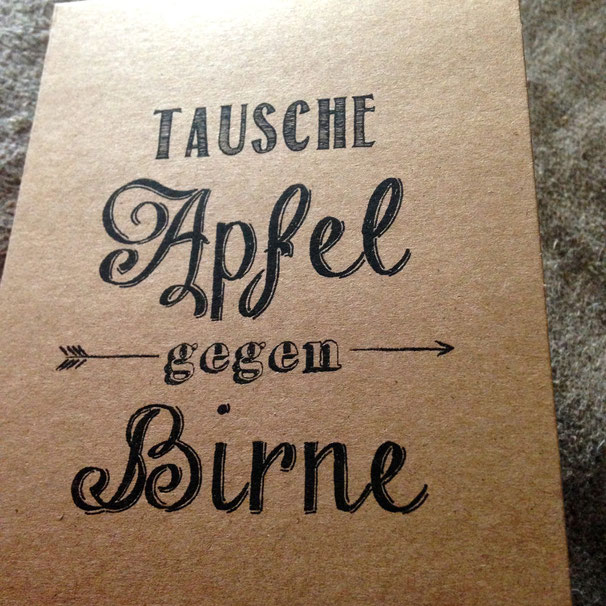 TAUSCHE
Apfel
gegen
Birne